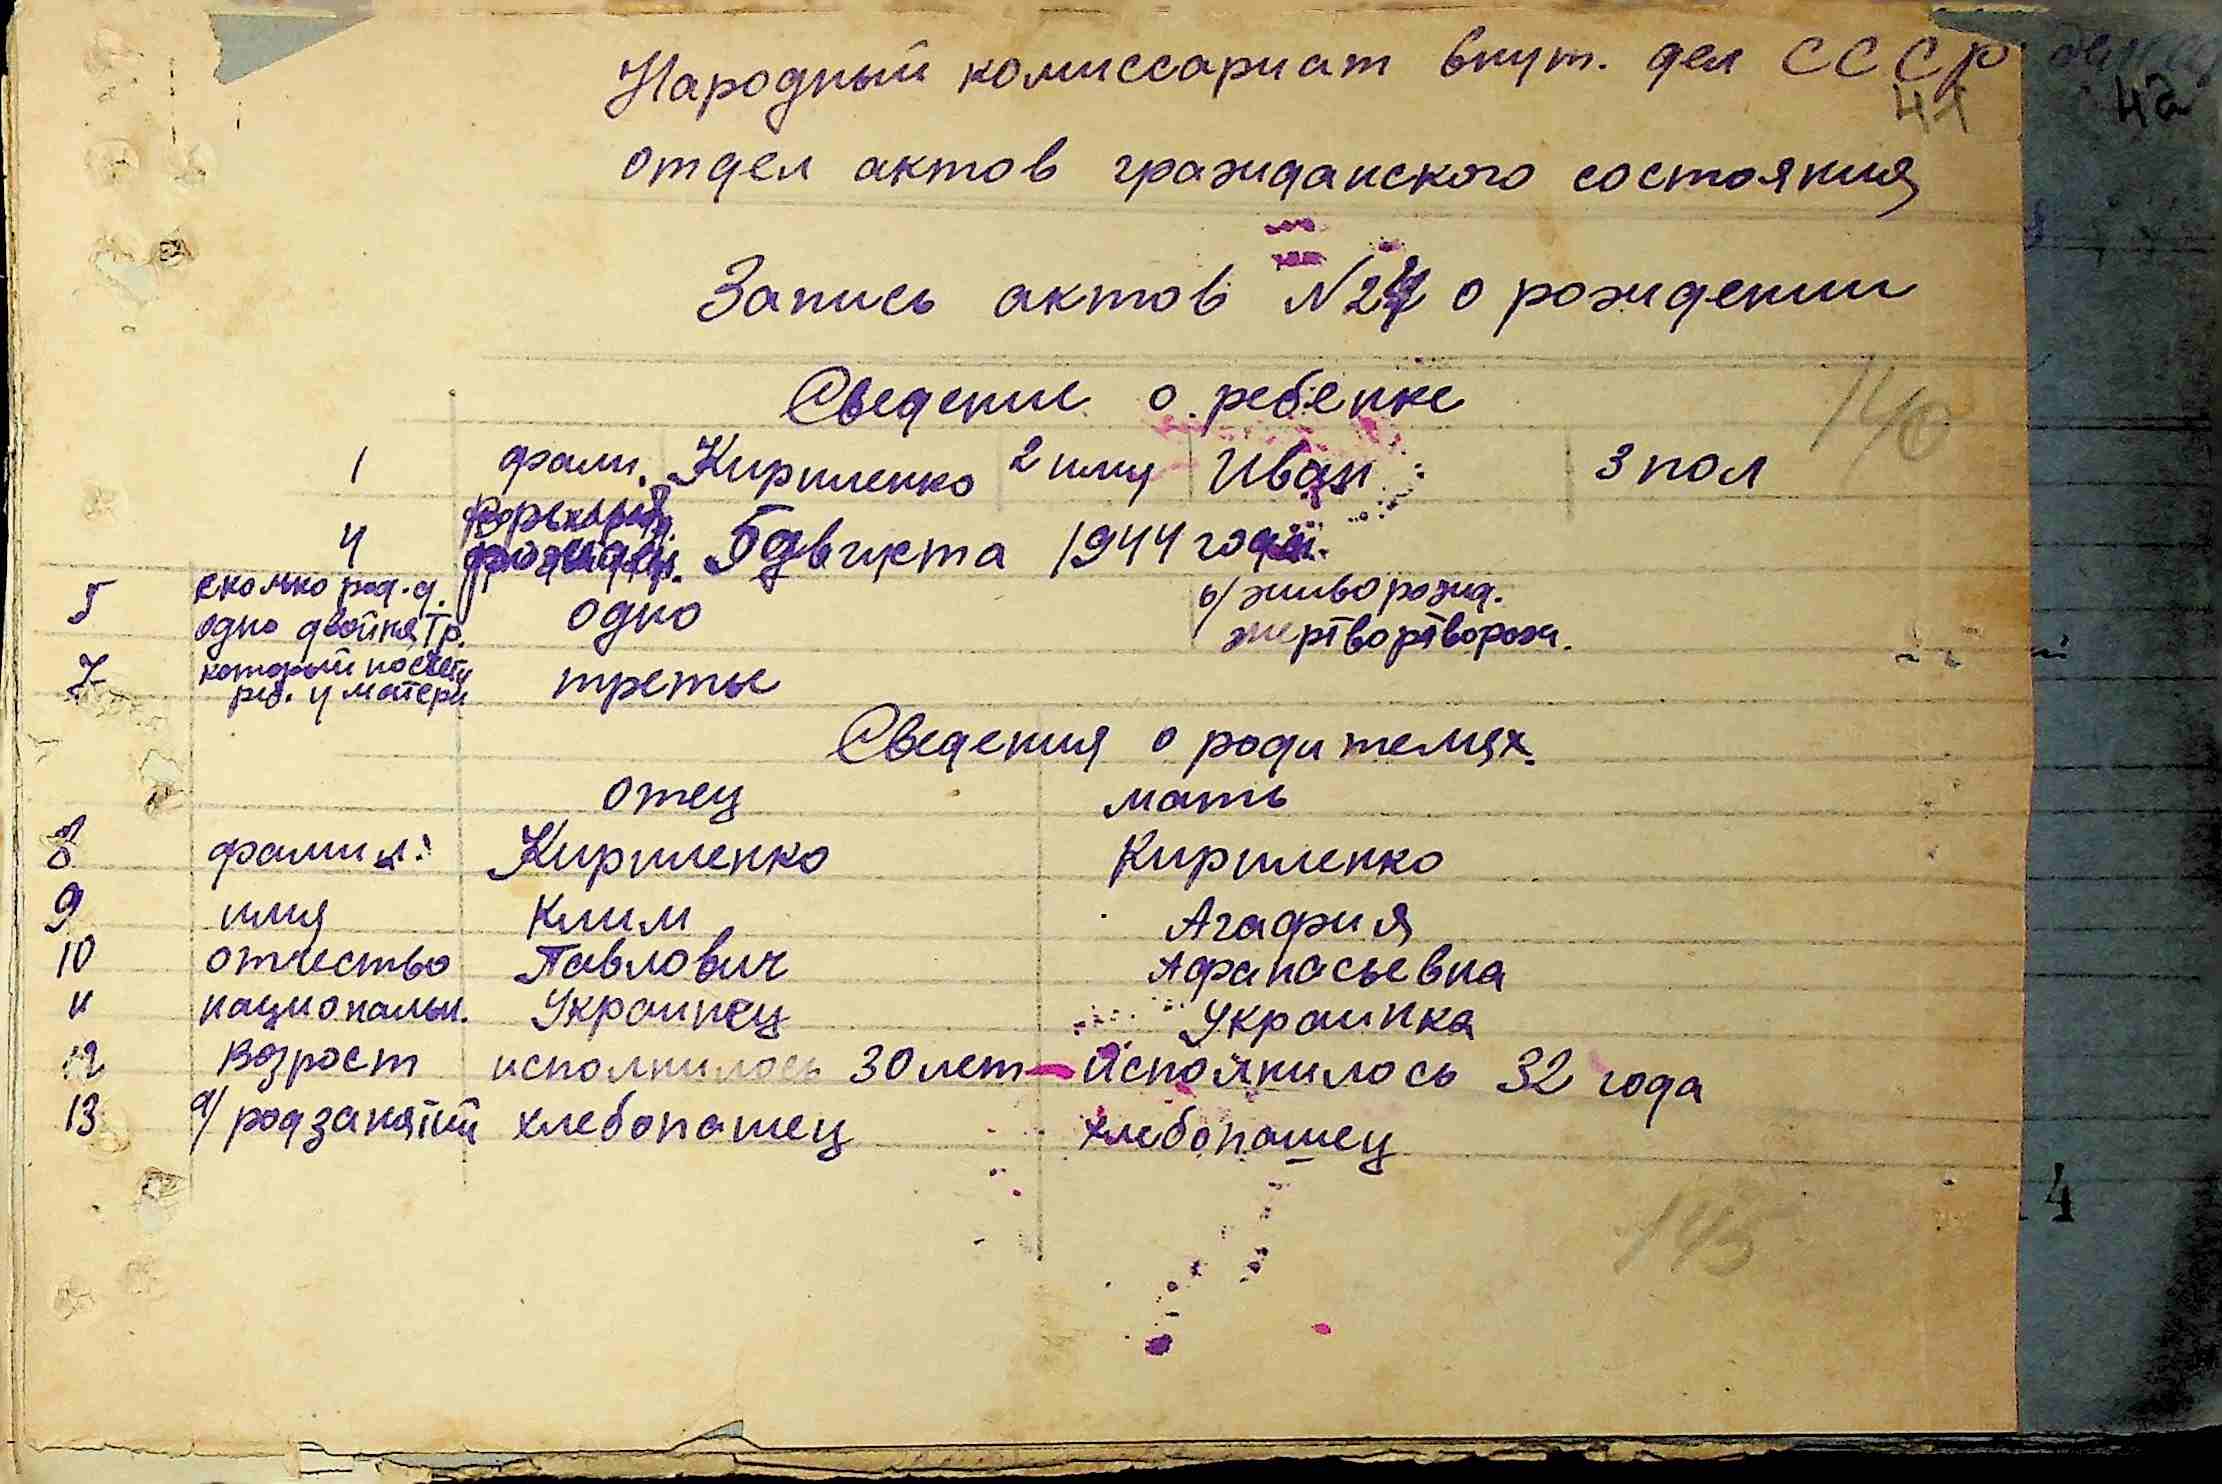 Народный комиссариат внут. дел СССР
41
42
отдел актов гражданского состояния
Запись актов № о рождении
Сведение о ребенке
140
1 фами. Кириленко 2 имя Иван 3 пол
4 5 августа 1944 года.
5 сколько род. д. одно б/ живорожд.
одно двойня тр.
7 который по счету третьи
реб. у матери
Сведения о родителях.
отец мать
8 фамил: Кириленко Кириленко
9 имя Клим Агафия
10 отчество Павлович Афанасьевна
11 национальн. Украинец Украинка
12 Возраст исполнилось 30 лет Исполнилось 32 года
13 а/ род занятий хлебопашец хлебопашец
4
145